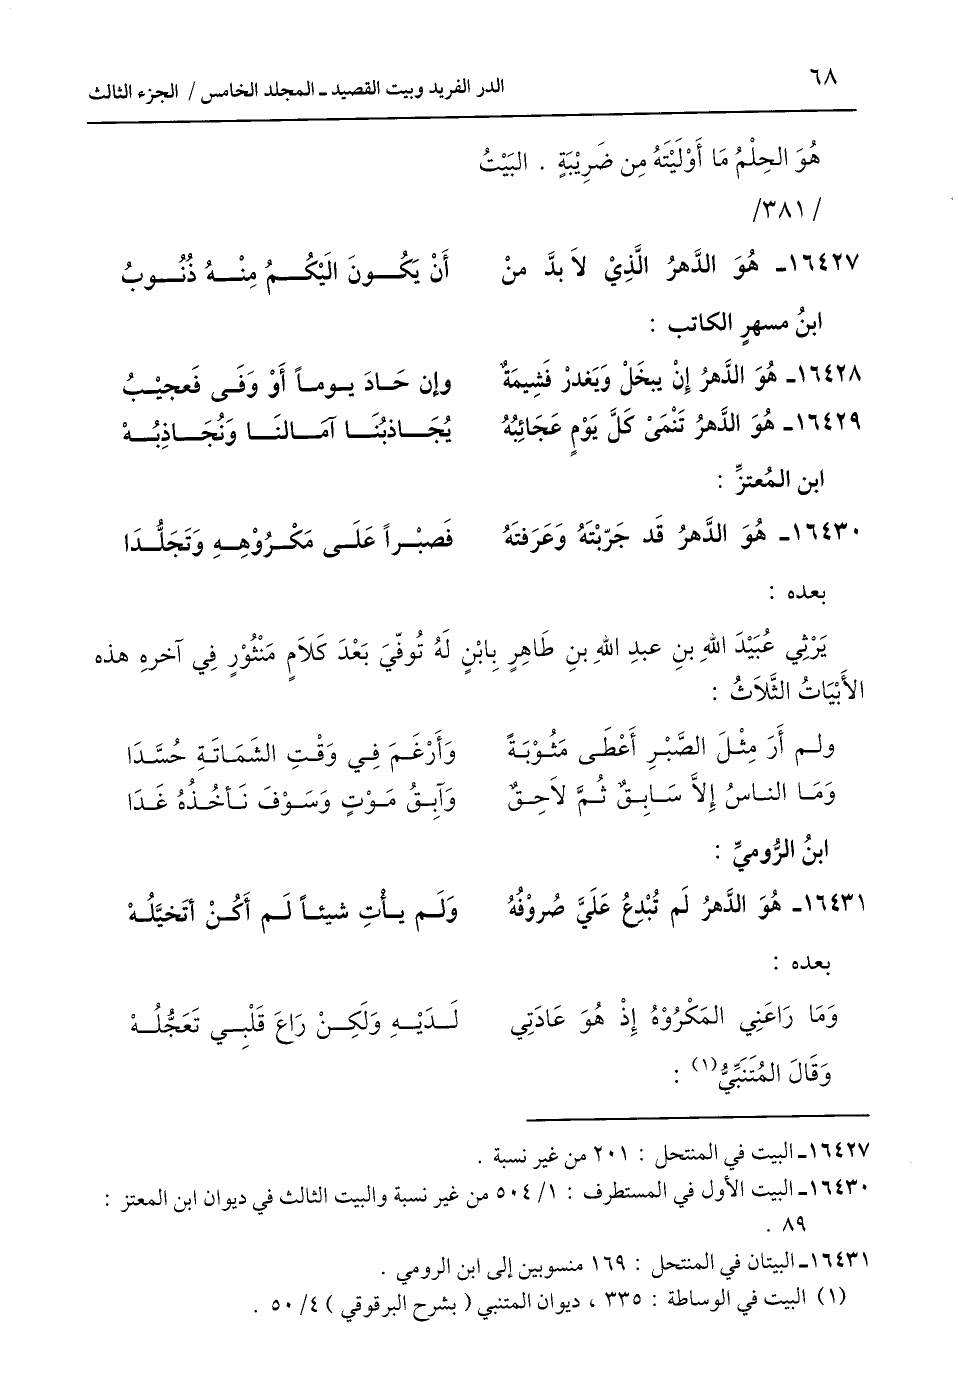 ٦٨
الدر الفريد وبيت القصيد ـ المجلد الخامس / الجزء الثالث
هُوَ الحِلْمُ مَا أَوْلَيْتَهُ مِن ضَرِيْبَةٍ . البَيْتُ
/٣٨١/
١٦٤٢٧ـ هُوَ الدَّهرُ الَّذِيْ لاَ بدَّ منْ أَنْ يَكُونَ الَيْكُمُ مِنْهُ ذُنُوبُ
ابنُ مسهرٍ الكاتب :
١٦٤٢٨ـ هُوَ الدَّهرُ إنْ يبخَلْ وَيَغدرْ فَشِيمَةٌ وإن حَادَ يوماً أَوْ وَفَى فَعجيْبُ
١٦٤٢٩ـ هُوَ الدَّهرُ تَنْمَىْ كَلَّ يَوْمٍ عَجَائِبُهُ يُجَاذبُنَا آمَالنَا وَنُجَاذِبُهْ
ابن المُعتزِّ :
١٦٤٣٠ـ هُوَ الدَّهرُ قَد جَرّبْتَهُ وَعَرَفتَهُ فَصبْراً عَلَى مَكْرُوْهِهِ وَتَجَلُّدَا
بعده :
يَرْثِي عُبَيْدَ اللهِ بنِ عبدِ اللهِ بنِ طَاهِرٍ بِابْنٍ لَهُ تُوفّيَ بَعْدَ كَلاَمٍ مَنْثُوْرٍ فِي آخرهِ هذه
الأَبْيَاتُ الثَّلاَثُ :
ولم أَرَ مِثْلَ الصَّبْرِ أَعْطَى مَثُوْبَةً وَأَرْغَمَ فِي وَقْتِ الشَمَاتَةِ حُسَّدَا
وَمَا الناسُ إلاَّ سَابِقٌ ثُمَّ لاَحِقٌ وَآبِقُ مَوْتٍ وَسَوْفَ نَأخُذُهُ غَدَا
ابنُ الرُّوميِّ :
١٦٤٣١ـ هُوَ الدَّهرُ لَم تُبْدِعُ عَلَيَّ صُروْفُهُ وَلَم يأْتِ شيئاً لَم أَكُنْ أتَخيَّلُهْ
بعده :
وَمَا رَاعَنِي المَكْرُوْهُ إذْ هُوَ عَادَتِي لَدَيْهِ وَلَكِنْ رَاعَ قَلْبِي تَعَجُّلُهْ
وَقَالَ المُتَنَبِّيُّ(١) :
١٦٤٢٧ـ البيت في المنتحل : ٢٠١ من غير نسبة .
١٦٤٣٠ـ البيت الأول في المستطرف : ١/ ٥٠٤ من غير نسبة والبيت الثالث في ديوان ابن المعتز :
٨٩ .
١٦٤٣١ـ البيتان في المنتحل : ١٦٩ منسوبين إلى ابن الرومي .
(١) البيت في الوساطة : ٣٣٥ ، ديوان المتنبي ( بشرح البرقوقي ) ٤/ ٥٠ .